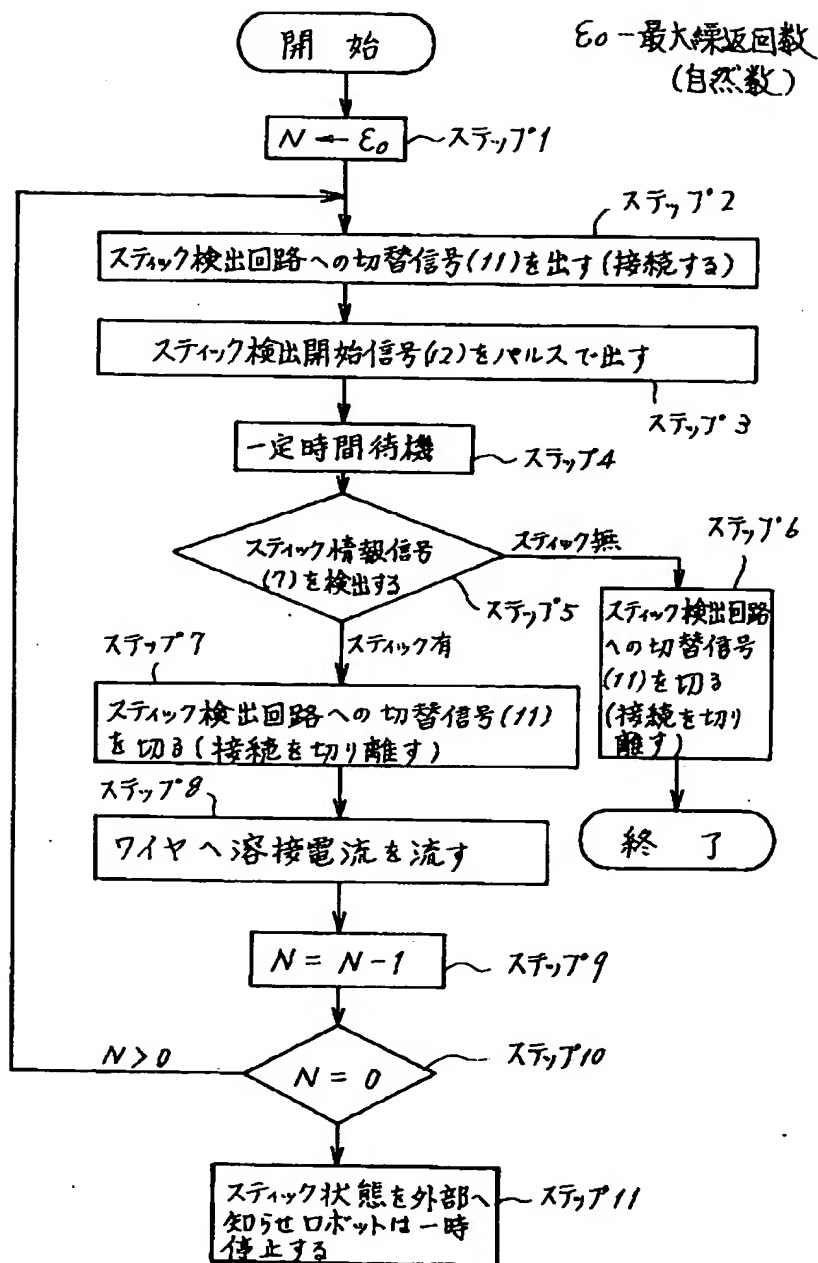 開始
ε₀ー最大繰返回数
(自然数)
N ← ε₀
ステップ1
ステップ2
スティック検出回路への切替信号(11)を出す(接続する)
スティック検出開始信号(12)をパルスで出す
ステップ3
一定時間待機
ステップ4
スティック情報信号
(7)を検出する
スティック無
ステップ5
ステップ6
スティック検出回路
への切替信号
(11)を切る
(接続を切り
離す)
終了
スティック有
ステップ7
スティック検出回路への切替信号(11)
を切る(接続を切り離す)
ステップ8
ワイヤへ溶接電流を流す
N = N-1
ステップ9
N > 0
N = 0
ステップ10
スティック状態を外部へ
知らせロボットは一時
停止する
ステップ11